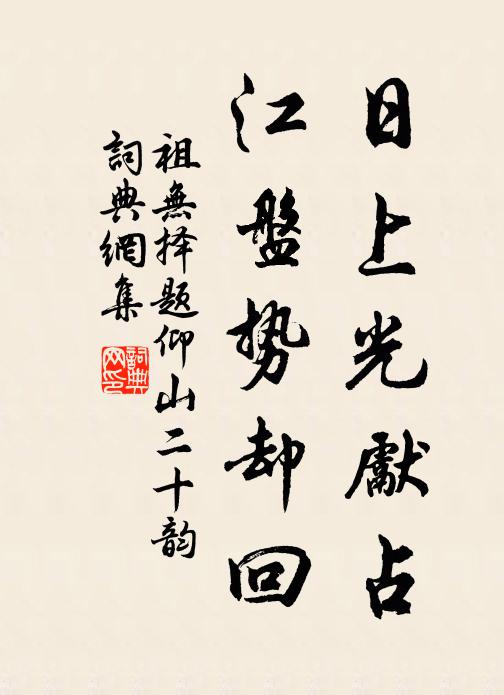 日上光獻占
江盤勢却回
祖無择題仰山二十韵
詞典網集
詞典网印